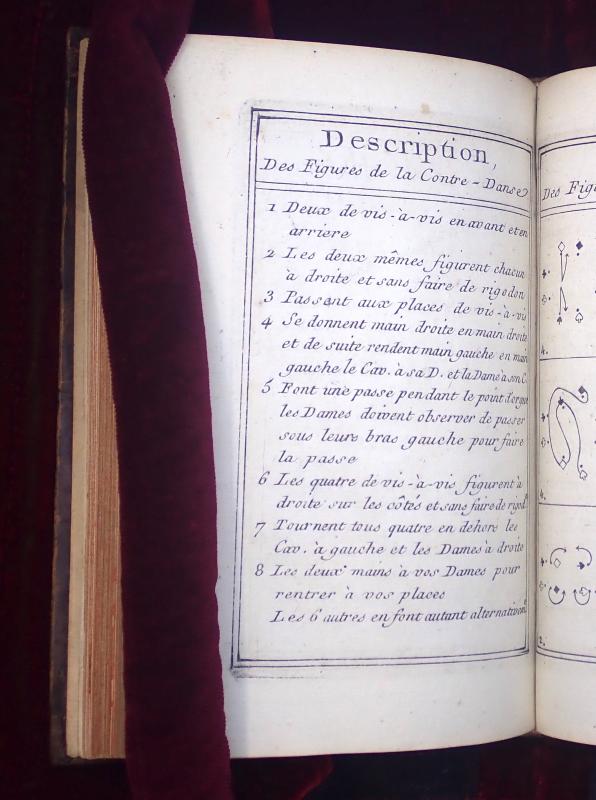 Description,
Des Figures de la Contre-Danse
1 Deux de vis-à-vis en avant et en
arriere
2 Les deux mêmes figurent chacun
à droite et sans faire de rigodon
3 Passent aux places de vis-à-vis
4 Se donnent main droite en main droite
et de suite rendent main gauche en main
gauche le Cav. à sa D. et la Dame à son C.
5 Font une passe pendant le point d'orgue
les Dames doivent observer de passer
sous leurs bras gauche pour faire
la passe
6 Les quatre de vis-à-vis figurent à
droite sur les côtés et sans faire de rigod.
7 Tournent tous quatre en dehors les
Cav. à gauche et les Dames à droite
8 Les deux mains à vos Dames pour
rentrer à vos places
Les 6 autres en font autant alternativemt
Des Figu
4.
4.
2.